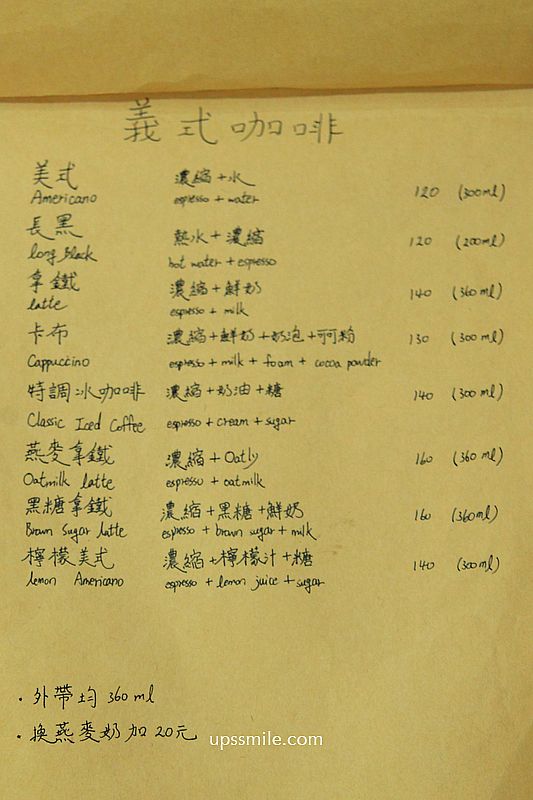 義式咖啡
美式 濃縮+水
Americano espresso + water 120 (300ml)
長黑 熱水+濃縮 120 (200ml)
long black hot water + espresso
拿鐵 濃縮+鮮奶 140 (360ml)
latte espresso + milk
卡布 濃縮+鮮奶+奶泡+可可粉 130 (300ml)
Cappuccino espresso + milk + foam + cocoa powder
特調冰咖啡 濃縮+奶油+糖 140 (300ml)
Classic Iced Coffee espresso + cream + sugar
燕麥拿鐵 濃縮+Oatly 160 (360ml)
Oatmilk latte espresso + oatmilk
黑糖拿鐵 濃縮+黑糖+鮮奶 160 (360ml)
Brown Sugar latte espresso + brown sugar + milk
檸檬美式 濃縮+檸檬汁+糖 140 (300ml)
lemon Americano espresso + lemon juice + sugar
・外帶均 360ml
・換燕麥奶加20元
upssmile.com